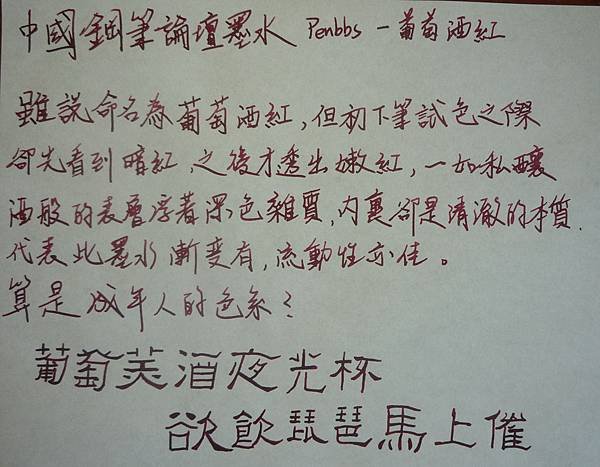 中國鋼筆論壇墨水 Penbbs - 葡萄酒紅
雖說命名為葡萄酒紅,但初下筆試色之際
卻先看到暗紅,之後才透出嫩紅,一如私釀
酒般的表層浮著深色雜質,內裏卻是清澈的本質.
代表此墨水漸變有,流動性亦佳。
算是成年人的色系?
葡萄美酒夜光杯
欲飲琵琶馬上催